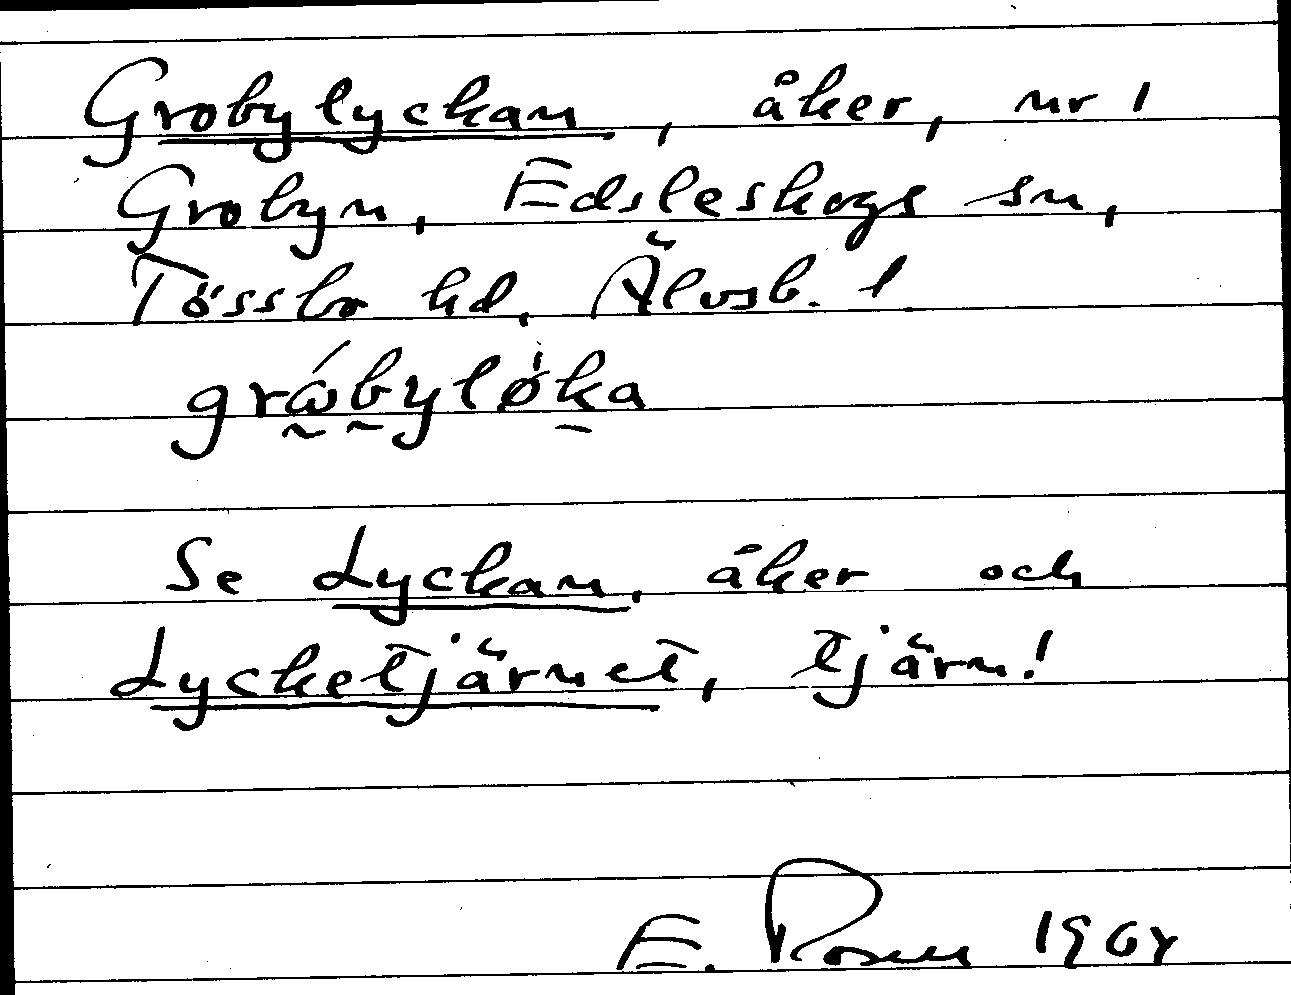 Grobylyckan, åker, nr 1
Grobyn, Edsleskogs sn,
Tössbo hd, Älvsb. l
Se Lyckan, åker och
Lycketjärnet, tjärn!
E. Rosén